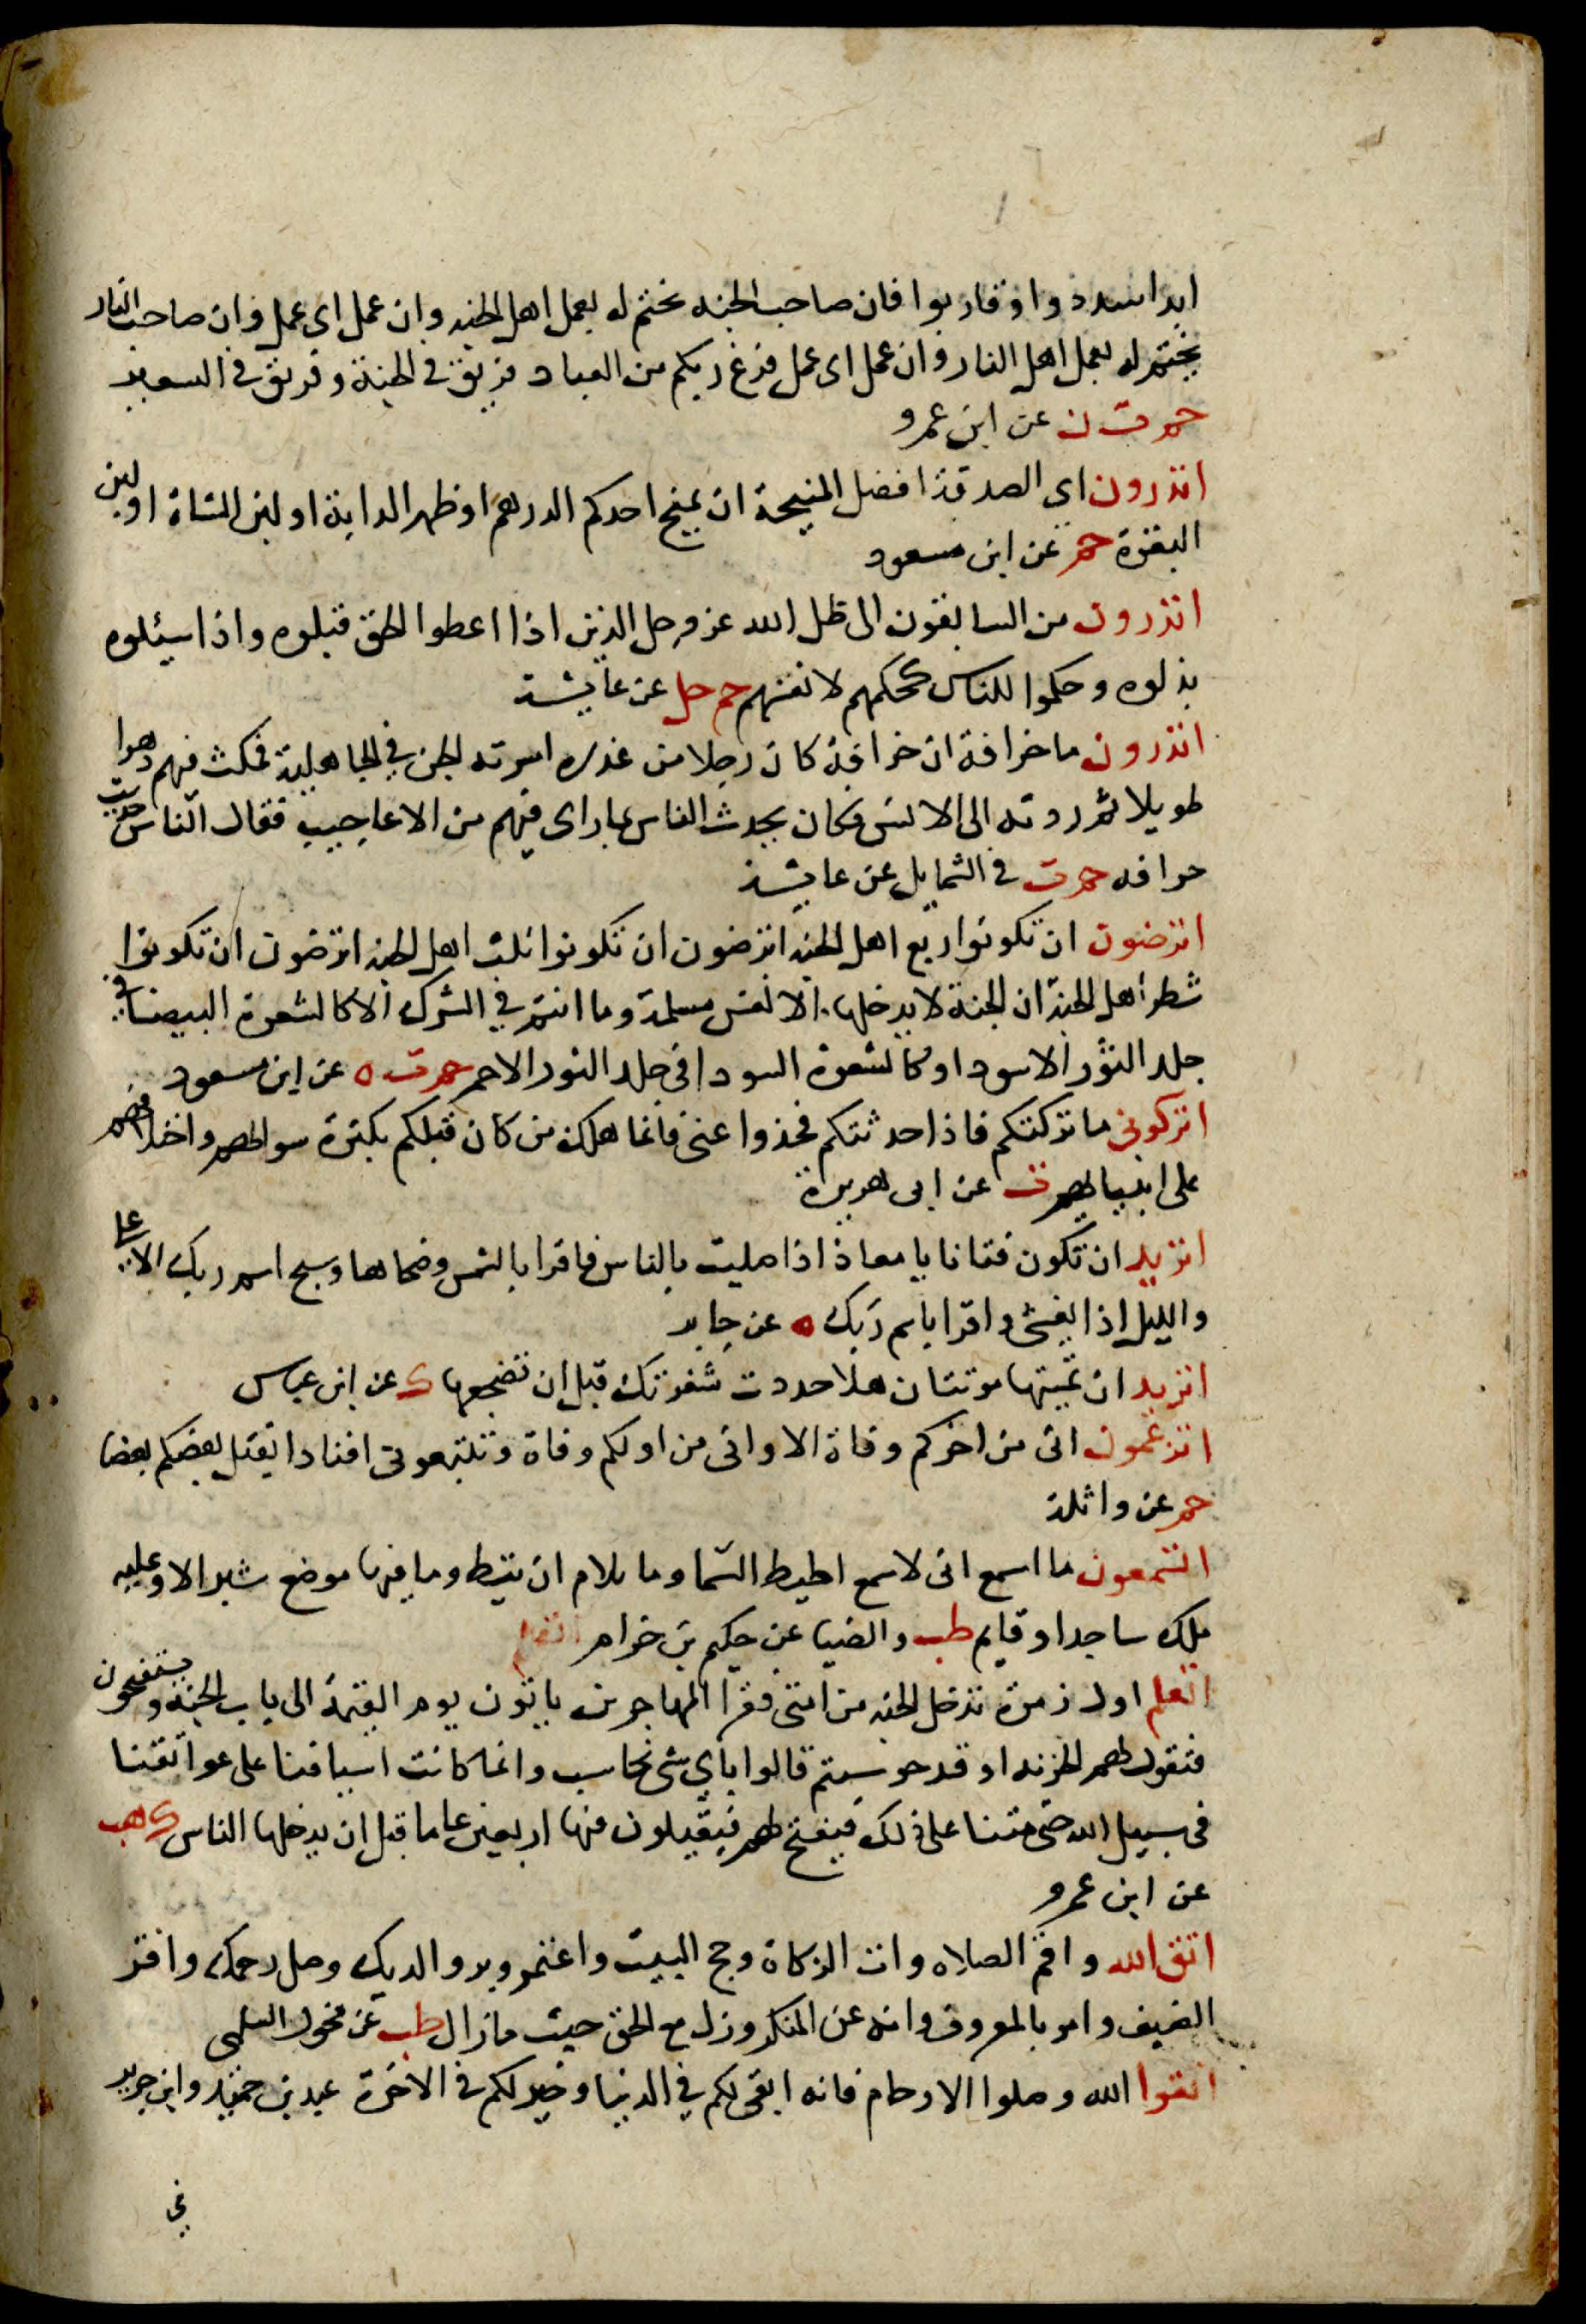 ابدا سددوا وقاربوا فان صاحب الجنه يختم له بعمل اهل الجنه وان عمل اى عمل وان صاحب النار
يختم له بعمل اهل النار وان عمل اى عمل فرغ ربكم من العباد فريق في الجنة وفريق في السعير
حم ت ن عن ابن عمرو
اتدرون اى الصدقة افضل المنيحة ان يمنح احدكم الدرهم او ظهر الدابة او لبن الشاة او لبن
البقرة حم عن ابن مسعود
اتدرون من السابقون الى ظل الله عز وجل الذين اذا اعطوا الحق قبلوه واذا سيئلوه
بذلوه وحكموا للناس كحكمهم لانفسهم حم حل عن عايشة
اتدرون ما خرافة ان خرافة كان رجلا من عذره اسرته الجن في الجاهلية فمكث فيهم دهرا
طويلا ثم ردوته الى الانس فكان يحدث الناس بما راى فيهم من الاعاجيب فقال الناس حديث
خرافه حم ت في الشمايل عن عايشة
اترضون ان تكونوا ربع اهل الجنه اترضون ان تكونوا ثلث اهل الجنه اترضون ان تكونوا
شطر أهل الجنة ان الجنة لا يدخلها الا نفس مسلمة وما انتم في الشرك الا كالشعرة البيضا في
جلد الثور الاسود او كالشعرة السودا في جلد الثور الاحمر حم ت ه عن ابن مسعود
اتركونى ما تركتكم فاذا حدثتكم فخذوا عنى فانما هلك من كان قبلكم بكثرة سوالهم واختلافهم
على انبيايهم ت عن ابى هريرة
اتريد ان تكون فتانا يا معاذ اذا صليت بالناس فاقرا بالشمس وضحاها وسبح اسم ربك الاعلى
والليل اذا يغشى واقرا باسم ربك ه عن جابر
اتريد ان تميتها موتتان هلا حددت شفرتك قبل ان تضجعها ك عن ابن عباس
اتزعمون انى من اخركم وفاة الا وانى من اولكم وفاة وتتبعونى افنادا يقتل بعضكم بعضا
حم عن واثلة
اتسمعون ما اسمع انى لاسمع اطيط السما وما تلام ان تيط وما فيها موضع شبر الا وعليه
ملك ساجد او قايم طب والضيا عن حكيم بن حزام
اتعلم اول زمرة تدخل الجنه من امتى فقرا المهاجرين ياتون يوم القيمة الى باب الجنة ويستفتحون
فتقول لهم الخزنه او قد حوسبتم قالوا باي شى نحاسب وانما كانت اسيافنا على عواتقنا
فى سبيل الله حتى متنا على ذلك فيفتح لهم فيقيلون فيها اربعين عاما قبل ان يدخلها الناس ك هب
عن ابن عمرو
اتق الله واقم الصلاه وات الزكاة وحج البيت واعتمر وبر والديك وصل رحمك واقر
الضيف وامر بالمعروف وانه عن المنكر وزل مع الحق حيث مازال طب عن مخول السلمى
اتقوا الله وصلوا الارحام فانه ابقى لكم في الدنيا وخير لكم في الاخرة عبد بن حميد وابن جرير
في